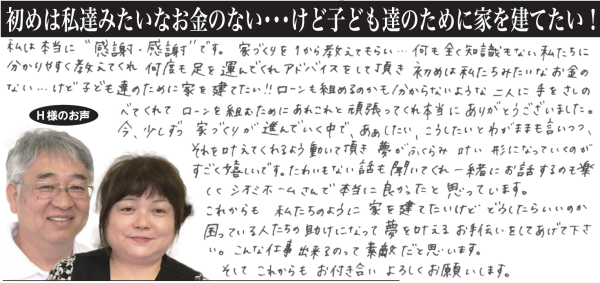 初めは私達みたいなお金のない・・・けど子ども達のために家を建てたい！
私は本当に“感謝・感謝”です。家づくりを1から教えてもらい…何も全く知識もない私たちに
分かりやすく教えてくれ 何度も足を運んでくれアドバイスをして頂き 初めは私たちみたいなお金の
ない…けど子ども達のために家を建てたい!! ローンも組めるのかも分からないような 二人に 手をさしの
べてくれて ローンを組むためにあれこれと頑張ってくれ本当に ありがとうございました。
H様のお声
今、少しずつ 家づくりが進んでいく中で、ああしたい、こうしたいとわがままも言いつつ、
それを叶えてくれるよう動いて頂き 夢がふくらみ 叶い 形になっていくのが
すごく嬉しいです。たわいもない話も聞いてくれ一緒にお話するのも楽
しく シオミホームさんで本当に良かったと思っています。
これからも 私たちのように 家を建てたいけど どうしたらいいのか
困っている人たちの助けになって 夢を叶えるお手伝いをしてあげて下さ
い。こんな仕事出来るのって素敵だと思います。
そして これからも お付き合い よろしくお願いします。